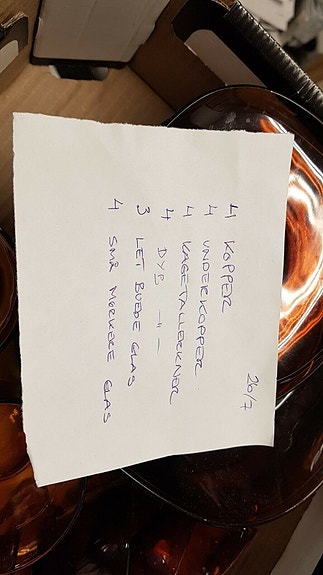 26/7
4 KOPPER
4 UNDERKOPPER
4 KAGETALLERKNER
4 DYB -"-
3 LET BUEDE GLAS
4 SMÅ MØRKERE GLAS